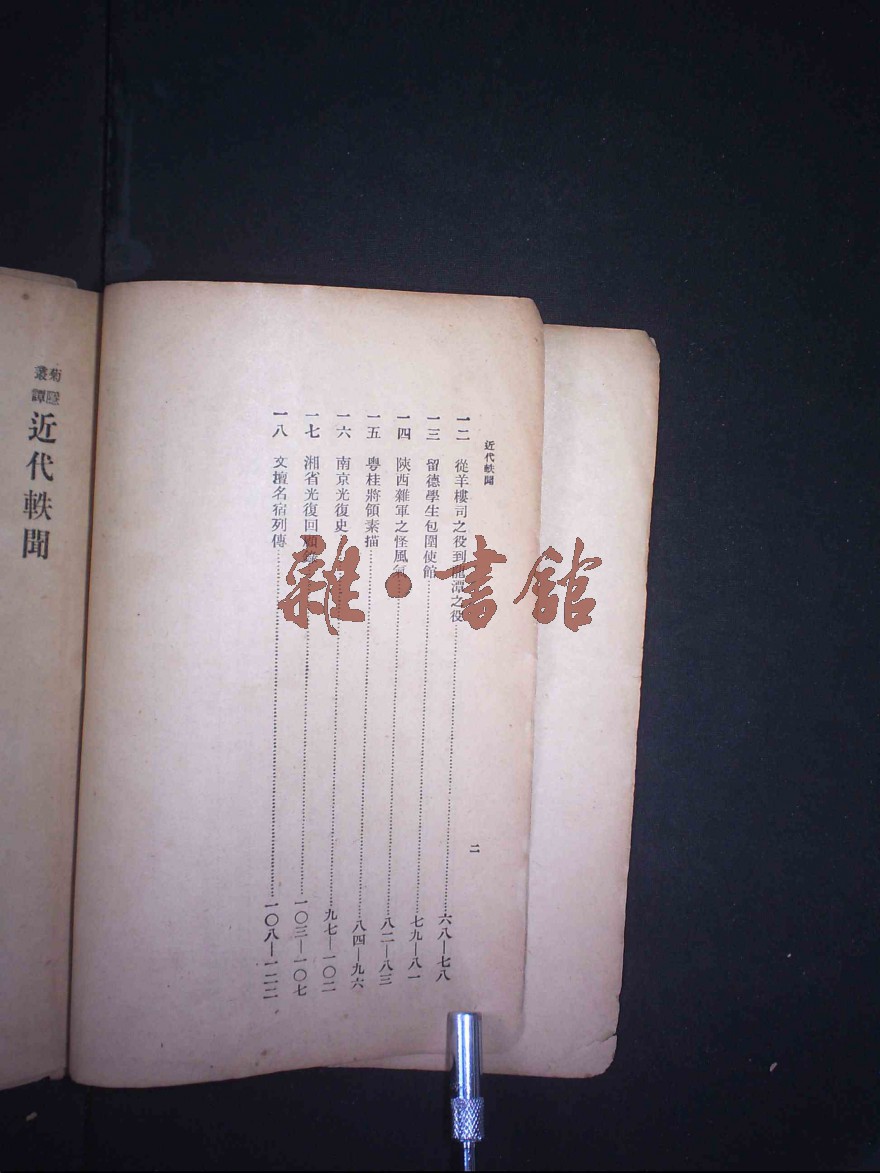 近代軼聞
一二 從羊樓司之役到龍潭之役 六八—七八
一三 留德學生包圍使館 七九—八一
一四 陝西雜軍之怪風氣 八二—八三
一五 粵桂將領素描 八四—九六
一六 南京光復史 九七—一〇二
一七 湘省光復回 一〇三—一〇七
一八 文壇名宿列傳 一〇八—一二二
二
菊隱叢譚
近代軼聞
雜·書館